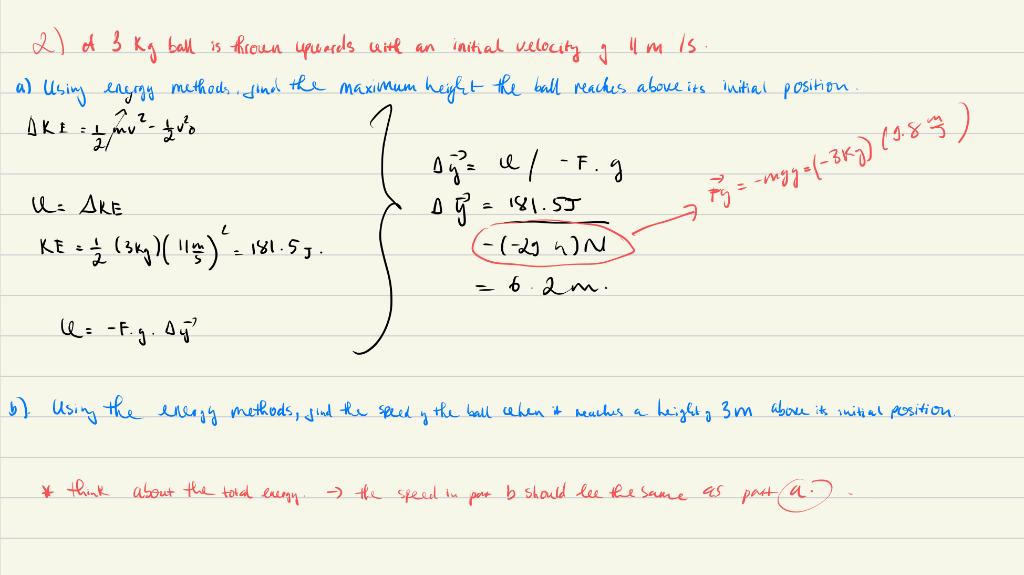 2) A 3 Kg ball is thrown upwards with an initial velocity of 11 m/s.
a) Using energy methods, find the maximum height the ball reaches above its initial position.
ΔKE = 1/2 mv² - 1/2 v²₀
U = ΔKE
KE = 1/2 (3kg)(11 m/s)² = 181.5 J.
U = -F.g. Δy→
Δy→ = U / -F.g
Δy→ = 181.5J
-(-29.4)N
= 6.2m.
F→y = -mgy = (-3Kg)(9.8 m/s)
b). Using the energy methods, find the speed of the ball when it reaches a height of 3m above its initial position.
* think about the total energy. → the speed in part b should be the same as part a.